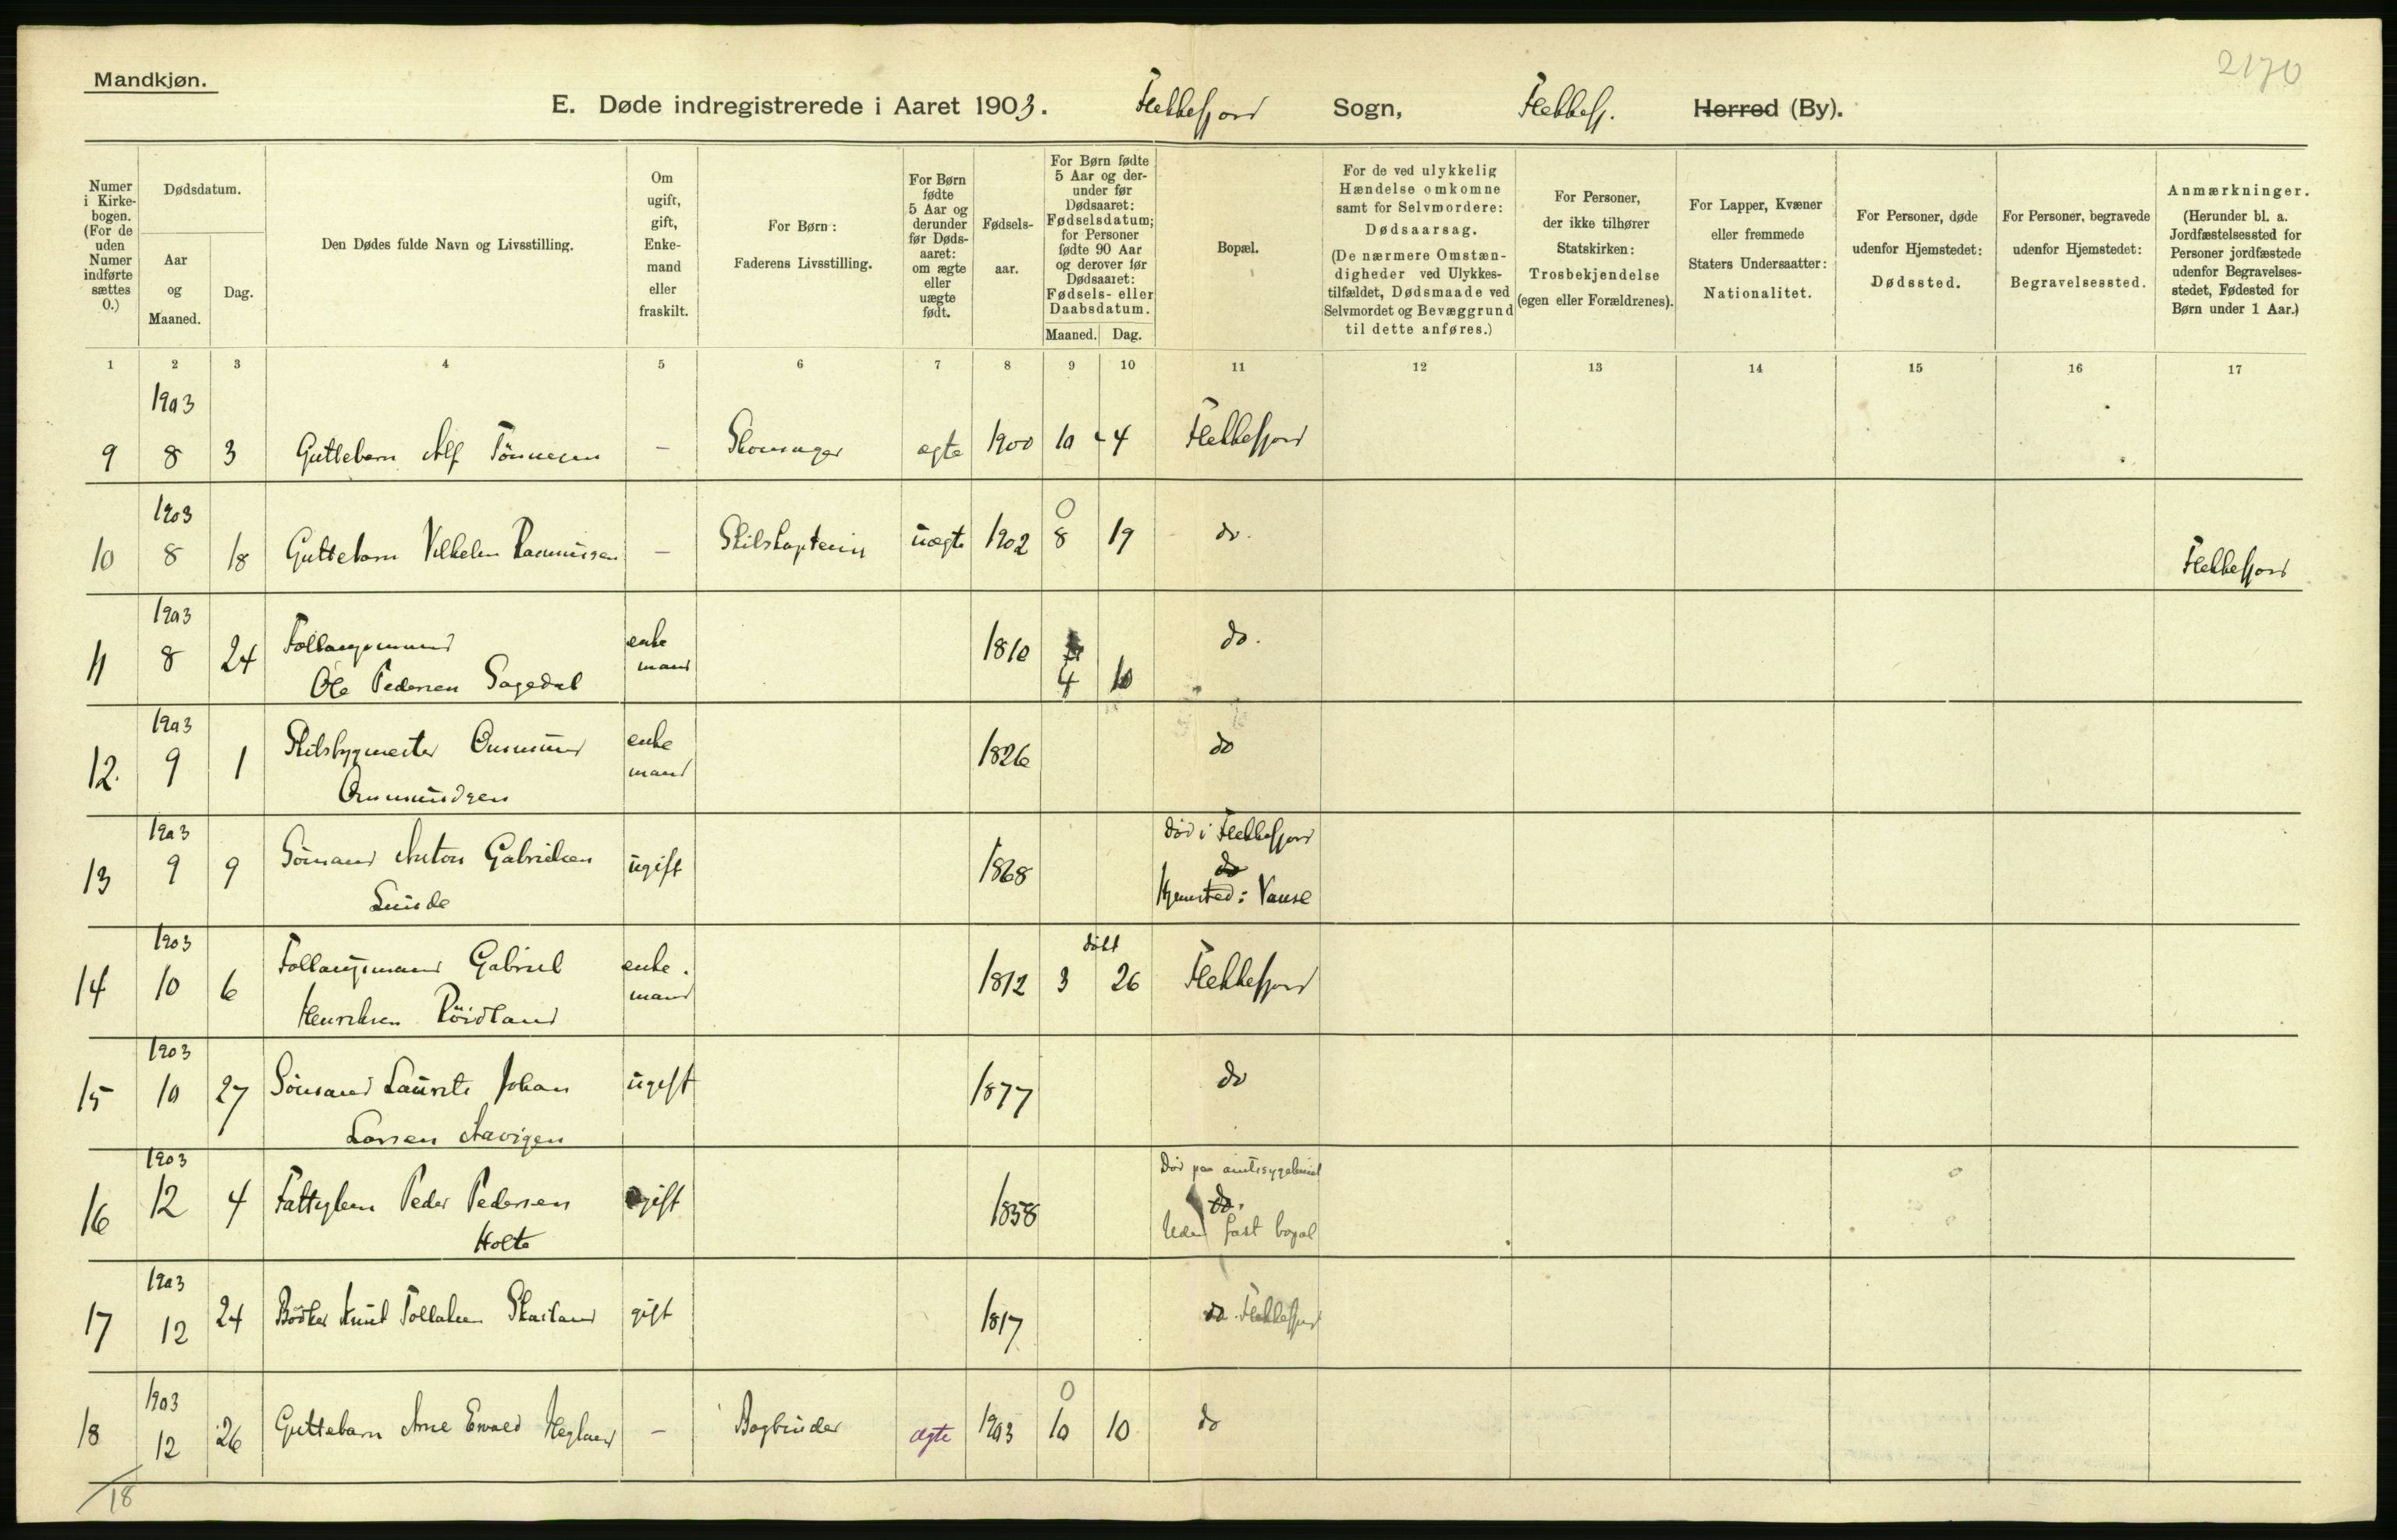 2170
Mandkjøn.
E. Døde indregistrerede i Aaret 1903. Flekkefjord Sogn, Flekkefj. Herred (By).
Numer i Kirkebogen. (For de uden Numer indførte sættes 0.)
Dødsdatum.
Aar og Maaned.
Dag.
Den Dødes fulde Navn og Livsstilling.
Om ugift, gift, Enkemand eller fraskilt.
For Børn: Faderens Livsstilling.
For Børn fødte 5 Aar og derunder før Dødsaaret: om ægte eller uægte født.
Fødselsaar.
For Børn fødte 5 Aar og derunder før Dødsaaret: Fødselsdatum; for Personer fødte 90 Aar og derover før Dødsaaret: Fødsels- eller Daabsdatum.
Maaned. Dag.
Bopæl.
For de ved ulykkelig Hændelse omkomne samt for Selvmordere: Dødsaarsag. (De nærmere Omstændigheder ved Ulykkestilfældet, Dødsmaade ved Selvmordet og Bevæggrund til dette anføres.)
For Personer, der ikke tilhører Statskirken: Trosbekjendelse (egen eller Forældrenes).
For Lapper, Kvæner eller fremmede Staters Undersaatter: Nationalitet.
For Personer, døde udenfor Hjemstedet: Dødssted.
For Personer, begravede udenfor Hjemstedet: Begravelsessted.
Anmærkninger. (Herunder bl. a. Jordfæstelsessted for Personer jordfæstede udenfor Begravelsesstedet, Fødested for Børn under 1 Aar.)
1 2 3 4 5 6 7 8 9 10 11 12 13 14 15 16 17
1903
9 8 3 Guttebarn Alf Tönnesen — Skomager ægte 1900 10 4 Flekkefjord
1903 0
10 8 18 Guttebarn Vilhelm Rasmussen — Skibskaptein uægte 1902 8 19 do. Flekkefjord
1903
11 8 24 Follaugsmand enke 1810 do.
Ole Pedersen Sagedal mand 4 10
1903
12. 9 1 Skibsbygmester Onmund enke 1826 do
Onmundsen mand
1903 död i Flekkefjord
13 9 9 Sömand Anton Gabrielsen ugift 1868 do
Lunde Hjemsted: Vanse
1903 döbt
14 10 6 Follaugsmand Gabriel enke. 1812 3 26 Flekkefjord
Henriksen Röidland mand
1903
15 10 27 Sömand Laurits Johan ugift 1877 do
Larsen Aavigen
1903 Död paa amtssygehuset
16 12 4 Fattiglem Peder Pedersen gift 1858 do.
Holte Uden fast bopæl
1903
17 12 24 Bödker Knut Tollaksen Skailand gift 1817 do. Flekkefjord
1903 0
18 12 26 Guttebarn Arne Ewald Hegland — Bogbinder ægte 1903 10 10 do
18